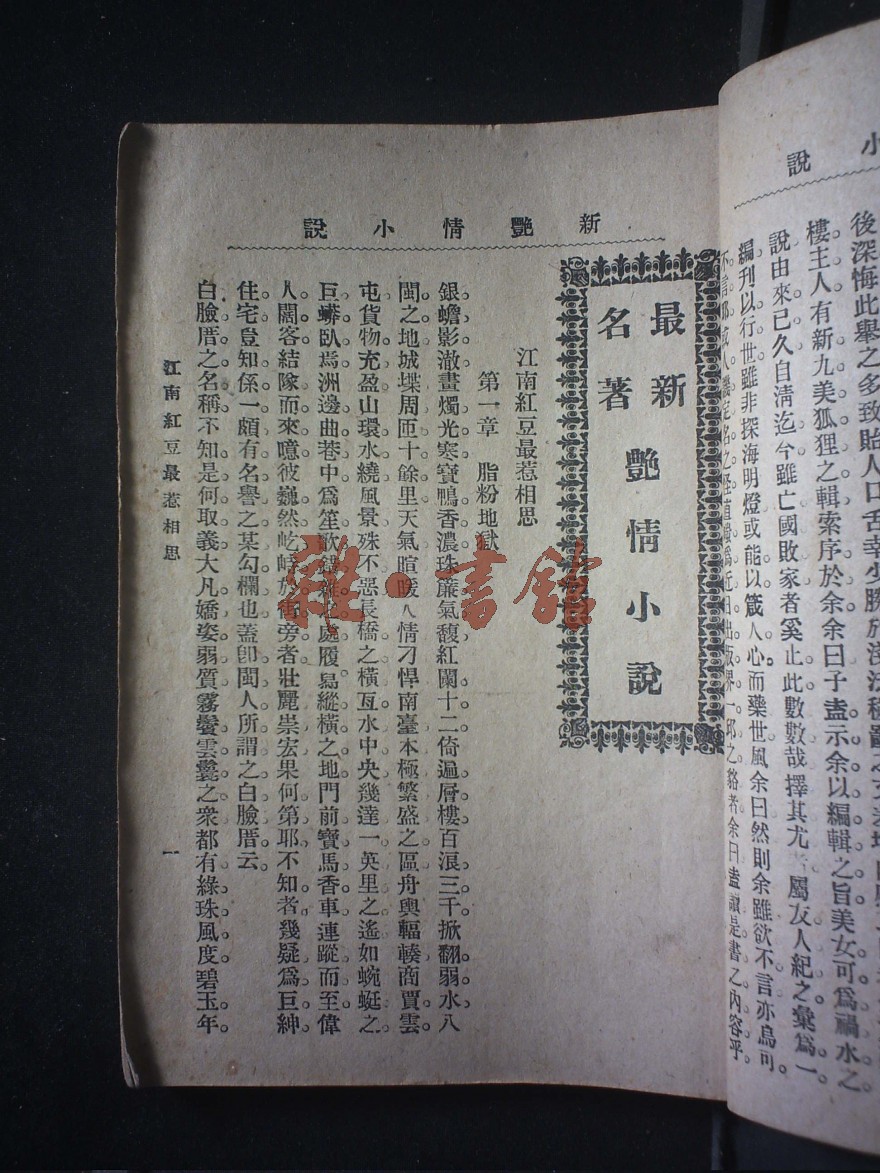 小說
後深悔此舉之多致貽人口舌幸少
樓主人有新九美狐狸之輯索序於余余曰子盍示余以編輯之旨美女可爲禍水之
說由來已久自淸迄今雖亡國敗家者奚止此數數哉擇其尤屬友人紀之彙爲一
編刊以行世雖非探海明燈或能以箴人心而藥世風余曰然則余雖欲不言亦烏可
余曰盍讀是書之內容乎
新艷情小說
最新
名著
艷情小說
江南紅豆最惹相思
第一章 脂粉地獄
銀蟾影澈畫燭光寒寶鴨香濃珠簾氣馥紅闌十二倚遍層樓百浪三千掀翻弱水八
閩之地城堞周匝十餘里天氣暄暖人情刁悍南臺本極繁盛之區舟輿輻輳商賈雲
屯貨物充盈山環水繞風景殊不惡長橋之橫亙水中央幾達一英里之遙如蜿蜒之
巨蟒臥焉洲邊曲巷中爲笙歌雜之處履舃縱橫之地門前寶馬香車連蹤而至偉
人闊客結隊而來噫彼巍然屹峙於街旁者壯麗崇宏果何第耶不知者幾疑爲巨紳
住宅豈知係一頗有名譽之某勾欄也蓋卽閩人所謂之白臉厝云
白臉厝之名稱不知是何取義大凡嬌姿弱質霧鬢雲鬟之衆都有綠珠風度碧玉年
江南紅豆最惹相思
一
雜·書館